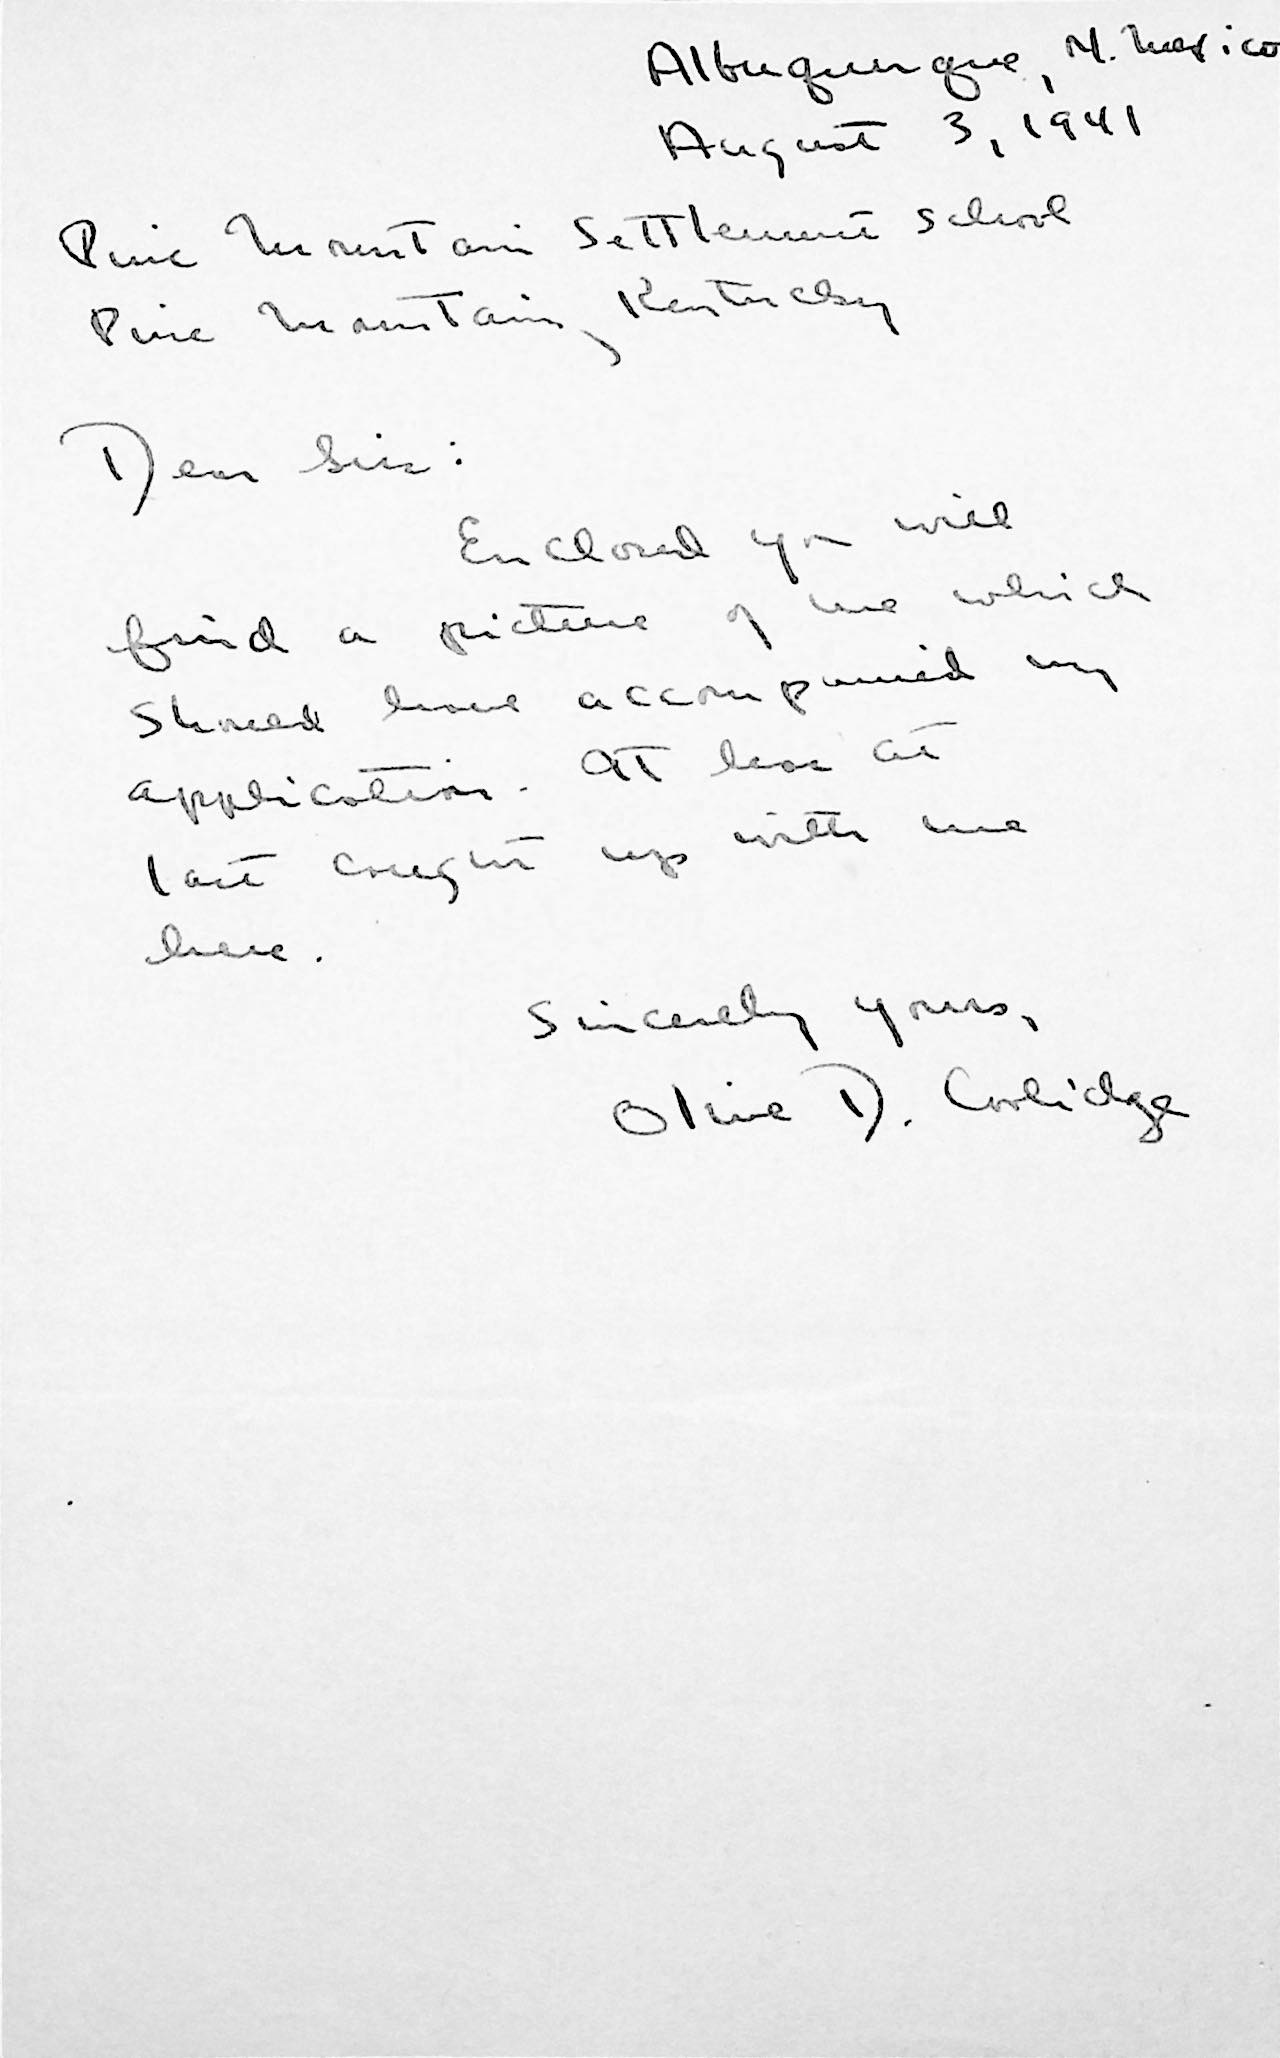 Albuquerque, N. Mexico
August 3, 1941
Pine Mountain Settlement School
Pine Mountain, Kentucky
Dear Sir:
Enclosed you will
find a picture of me which
should have accompanied my
application. It has at
last caught up with me
here.
Sincerely yours,
Olive D. Coolidge